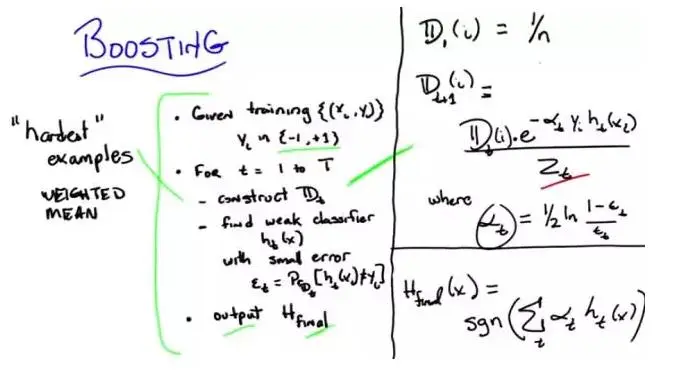 BOOSTING
"hardest"
examples
WEIGHTED
MEAN
• Given training {(xᵢ, yᵢ)}
yᵢ in {-1, +1}
• For t = 1 to T
- construct 𝔻ₜ
- find weak classifier
hₜ(x)
with small error
εₜ = P_𝔻ₜ[hₜ(xᵢ)≠yᵢ]
• output H_final
𝔻₁(i) = 1/n
𝔻ₜ₊₁(i) =
𝔻ₜ(i)·e^(-αₜ yᵢ hₜ(xᵢ))
Zₜ
where
αₜ = 1/2 ln (1-εₜ)/εₜ
H_final(x) =
sgn(∑ₜ αₜ hₜ(x))